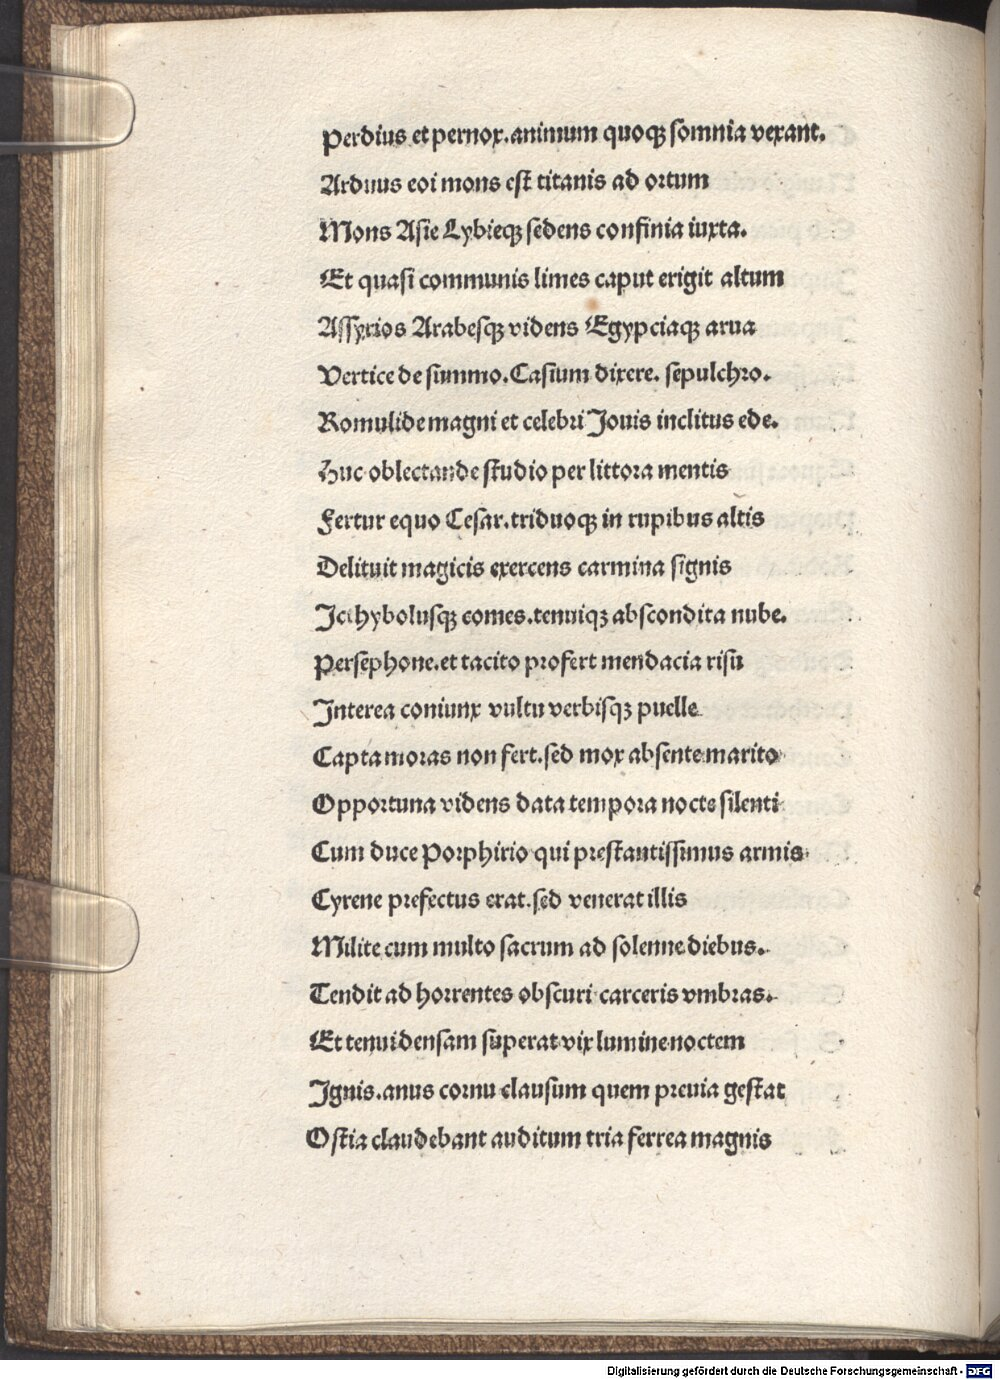 Perdius et pernox.animum quoqꝫ somnia vexant.
Arduus eoi mons est titanis ad ortum
Mons Asie Lybieqꝫ sedens confinia iuxta.
Et quasi communis limes caput erigit altum
Assyrios Arabesqꝫ videns Egypciaqꝫ arua
Vertice de summo.Casium dixere. sepulchro.
Romulide magni et celebri Jouis inclitus ede.
Huc oblectande studio per littora mentis
Fertur equo Cesar.triduoqꝫ in rupibus altis
Delituit magicis exercens carmina signis
Jcthybolusqꝫ comes.tenuiqꝫ abscondita nube.
Persephone.et tacito profert mendacia risu
Jnterea coniunx vultu verbisqꝫ puelle
Capta moras non fert.sed mox absente marito
Opportuna videns data tempora nocte silenti
Cum duce Porphirio qui prestantissimus armis
Cyrene prefectus erat.sed venerat illis
Milite cum multo sacrum ad solenne diebus.
Tendit ad horrentes obscuri carceris vmbras.
Et tenui densam superat vix lumine noctem
Jgnis.anus cornu clausum quem preuia gestat
Ostia claudebant auditum tria ferrea magnis
Digitalisierung gefördert durch die Deutsche Forschungsgemeinschaft - DFG